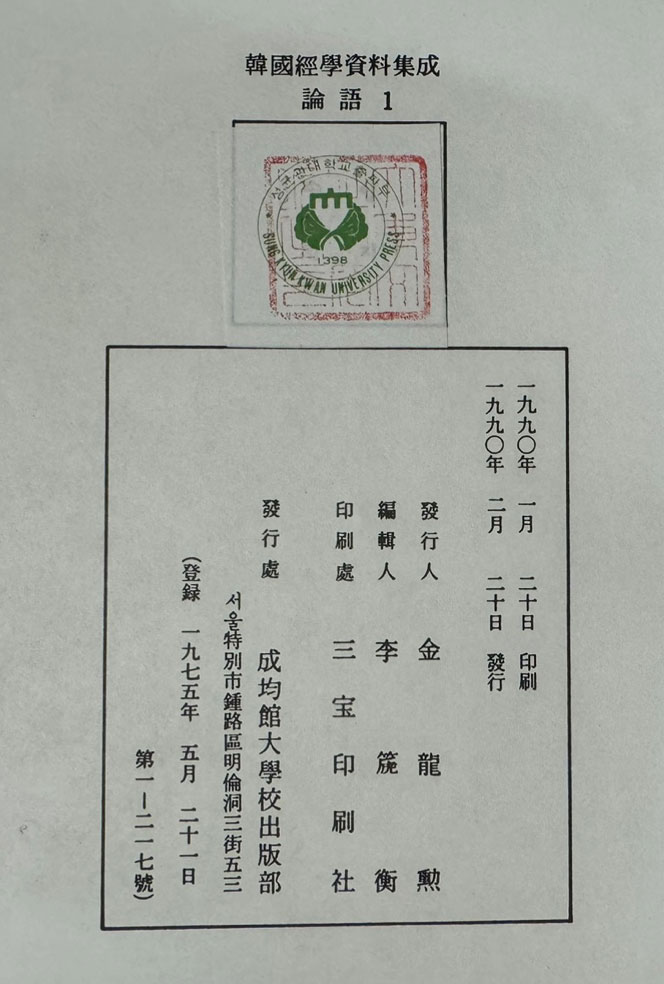 韓國經學資料集成
論語 1
성균관대학교출판부
1398
SUNG KYUN KWAN UNIVERSITY PRESS
一九九〇年 一月 二十日 印刷
一九九〇年 二月 二十日 發行
發行人 金龍勲
編輯人 李箎衡
印刷處 三宝印刷社
發行處 成均館大學校出版部
서울特別市鍾路區明倫洞三街五三
(登録 一九七五年 五月 二十一日
第一—二一七號)